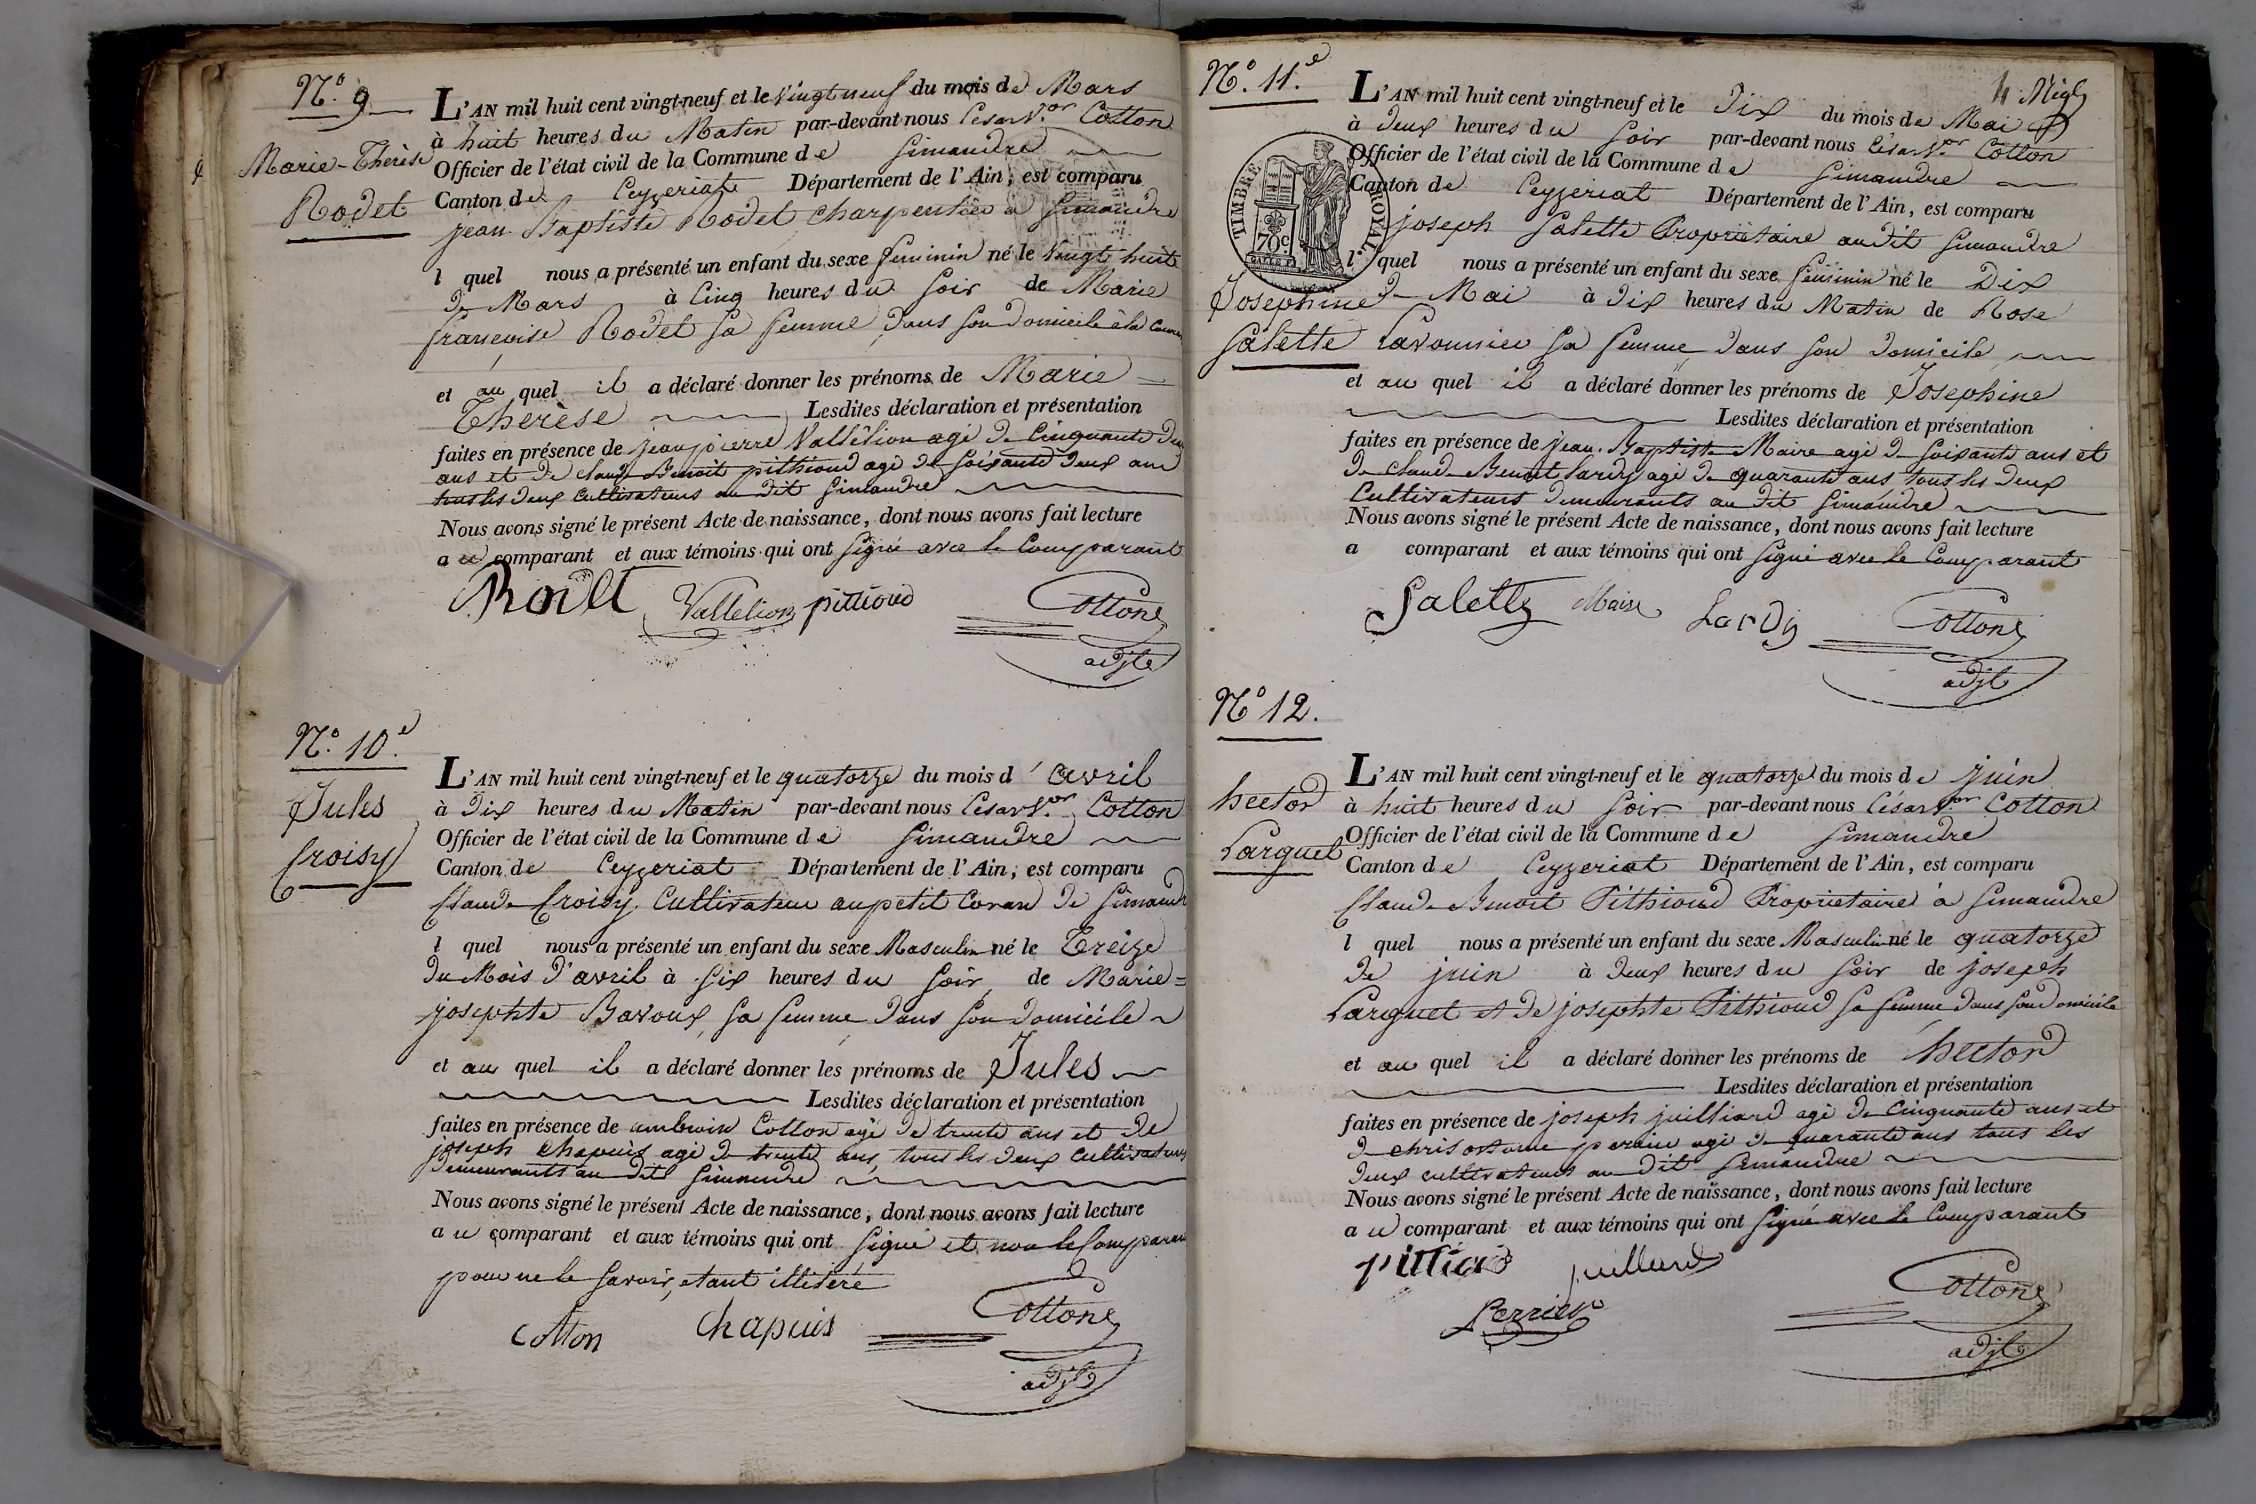 N.° 9
Marie-Thérèse
Rodet
L'AN mil huit cent vingt-neuf et le Vingt neuf du mois de Mars
à huit heures du Matin par-devant nous César V.or Cotton
Officier de l'état civil de la Commune de Simandre
Canton de Ceyzeriat Département de l'Ain, est comparu
jean Baptiste Rodet charpentier a Simandre
l quel nous a présenté un enfant du sexe feminin né le Vingt huit
de Mars à Cinq heures du Soir de Marie
françoise Rodet sa femme, dans son domicile à la
et au quel il a déclaré donner les prénoms de Marie =
Therèse Lesdites déclaration et présentation
faites en présence de jean pierre Vallélion agé de Cinquante deux
ans et de claude Benoit pithioud agé de soixante deux ans
tous les deux cultivateurs au dit Simandre
Nous avons signé le présent Acte de naissance, dont nous avons fait lecture
au comparant et aux témoins qui ont signé avec le Comparant
Vallelion pithioud Cotton
adjt
N.° 10.e
Jules
Croisy
L'AN mil huit cent vingt-neuf et le quatorze du mois d'avril
à Dix heures du Matin par-devant nous César V.or Cotton
Officier de l'état civil de la Commune de Simandre
Canton de Ceyzeriat Département de l'Ain, est comparu
Claude Croisy Cultivateur au petit Coran de Simandre
l quel nous a présenté un enfant du sexe Masculin né le Treize
du Mois d'avril à Six heures du Soir, de Marie =
josephte Bavoux, sa femme dans son domicile
et au quel il a déclaré donner les prénoms de Jules
Lesdites déclaration et présentation
faites en présence de Cotton agé de trente ans et de
joseph chapuis agé de trente ans, tous les deux cultivateurs
demeurants au dit Simandre
Nous avons signé le présent Acte de naissance, dont nous avons fait lecture
au comparant et aux témoins qui ont signé et non le Comparant
pour ne le savoir, etant illiteré
Cotton Chapuis Cotton
adjt
N.° 11.e
Josephine
Salette
TIMBRE ROYAL
70c
L'AN mil huit cent vingt-neuf et le Dix du mois de Mai
à deux heures du Soir par-devant nous César V.or Cotton
Officier de l'état civil de la Commune de Simandre
Canton de Ceyzeriat Département de l'Ain, est comparu
joseph Salette Propriétaire au dit Simandre
l quel nous a présenté un enfant du sexe feminin né le Dix
de Mai à Dix heures du Matin de Rose
Savonnier sa femme dans son domicile
et au quel il a déclaré donner les prénoms de Josephine
Lesdites déclaration et présentation
faites en présence de jean Baptiste Maire agé de soixante ans et
de claude Benoit Lardy agé de quarante ans tous les deux
Cultivateurs demeurants au dit Simandre
Nous avons signé le présent Acte de naissance, dont nous avons fait lecture
a comparant et aux témoins qui ont signé avec le Comparant
Salette Maire Lardy Cotton
adjt
N.° 12.
hector
Larguet
L'AN mil huit cent vingt-neuf et le quatorze du mois de juin
à huit heures du Soir par-devant nous César V.or Cotton
Officier de l'état civil de la Commune de Simandre
Canton de Ceyzeriat Département de l'Ain, est comparu
Claude Benoit Pithioud Propriétaire à Simandre
l quel nous a présenté un enfant du sexe Masculin né le quatorze
de juin à deux heures du Soir de joseph
Larguet et de josephte Pithioud sa femme dans son domicile
et au quel il a déclaré donner les prénoms de hector
Lesdites déclaration et présentation
faites en présence de joseph juilliard agé de cinquante ans et
de chrisostome agé de quarante ans tous les
deux cultivateurs au dit Simandre
Nous avons signé le présent Acte de naissance, dont nous avons fait lecture
au comparant et aux témoins qui ont signé avec le Comparant
juillard Cotton
Perrier
adjt